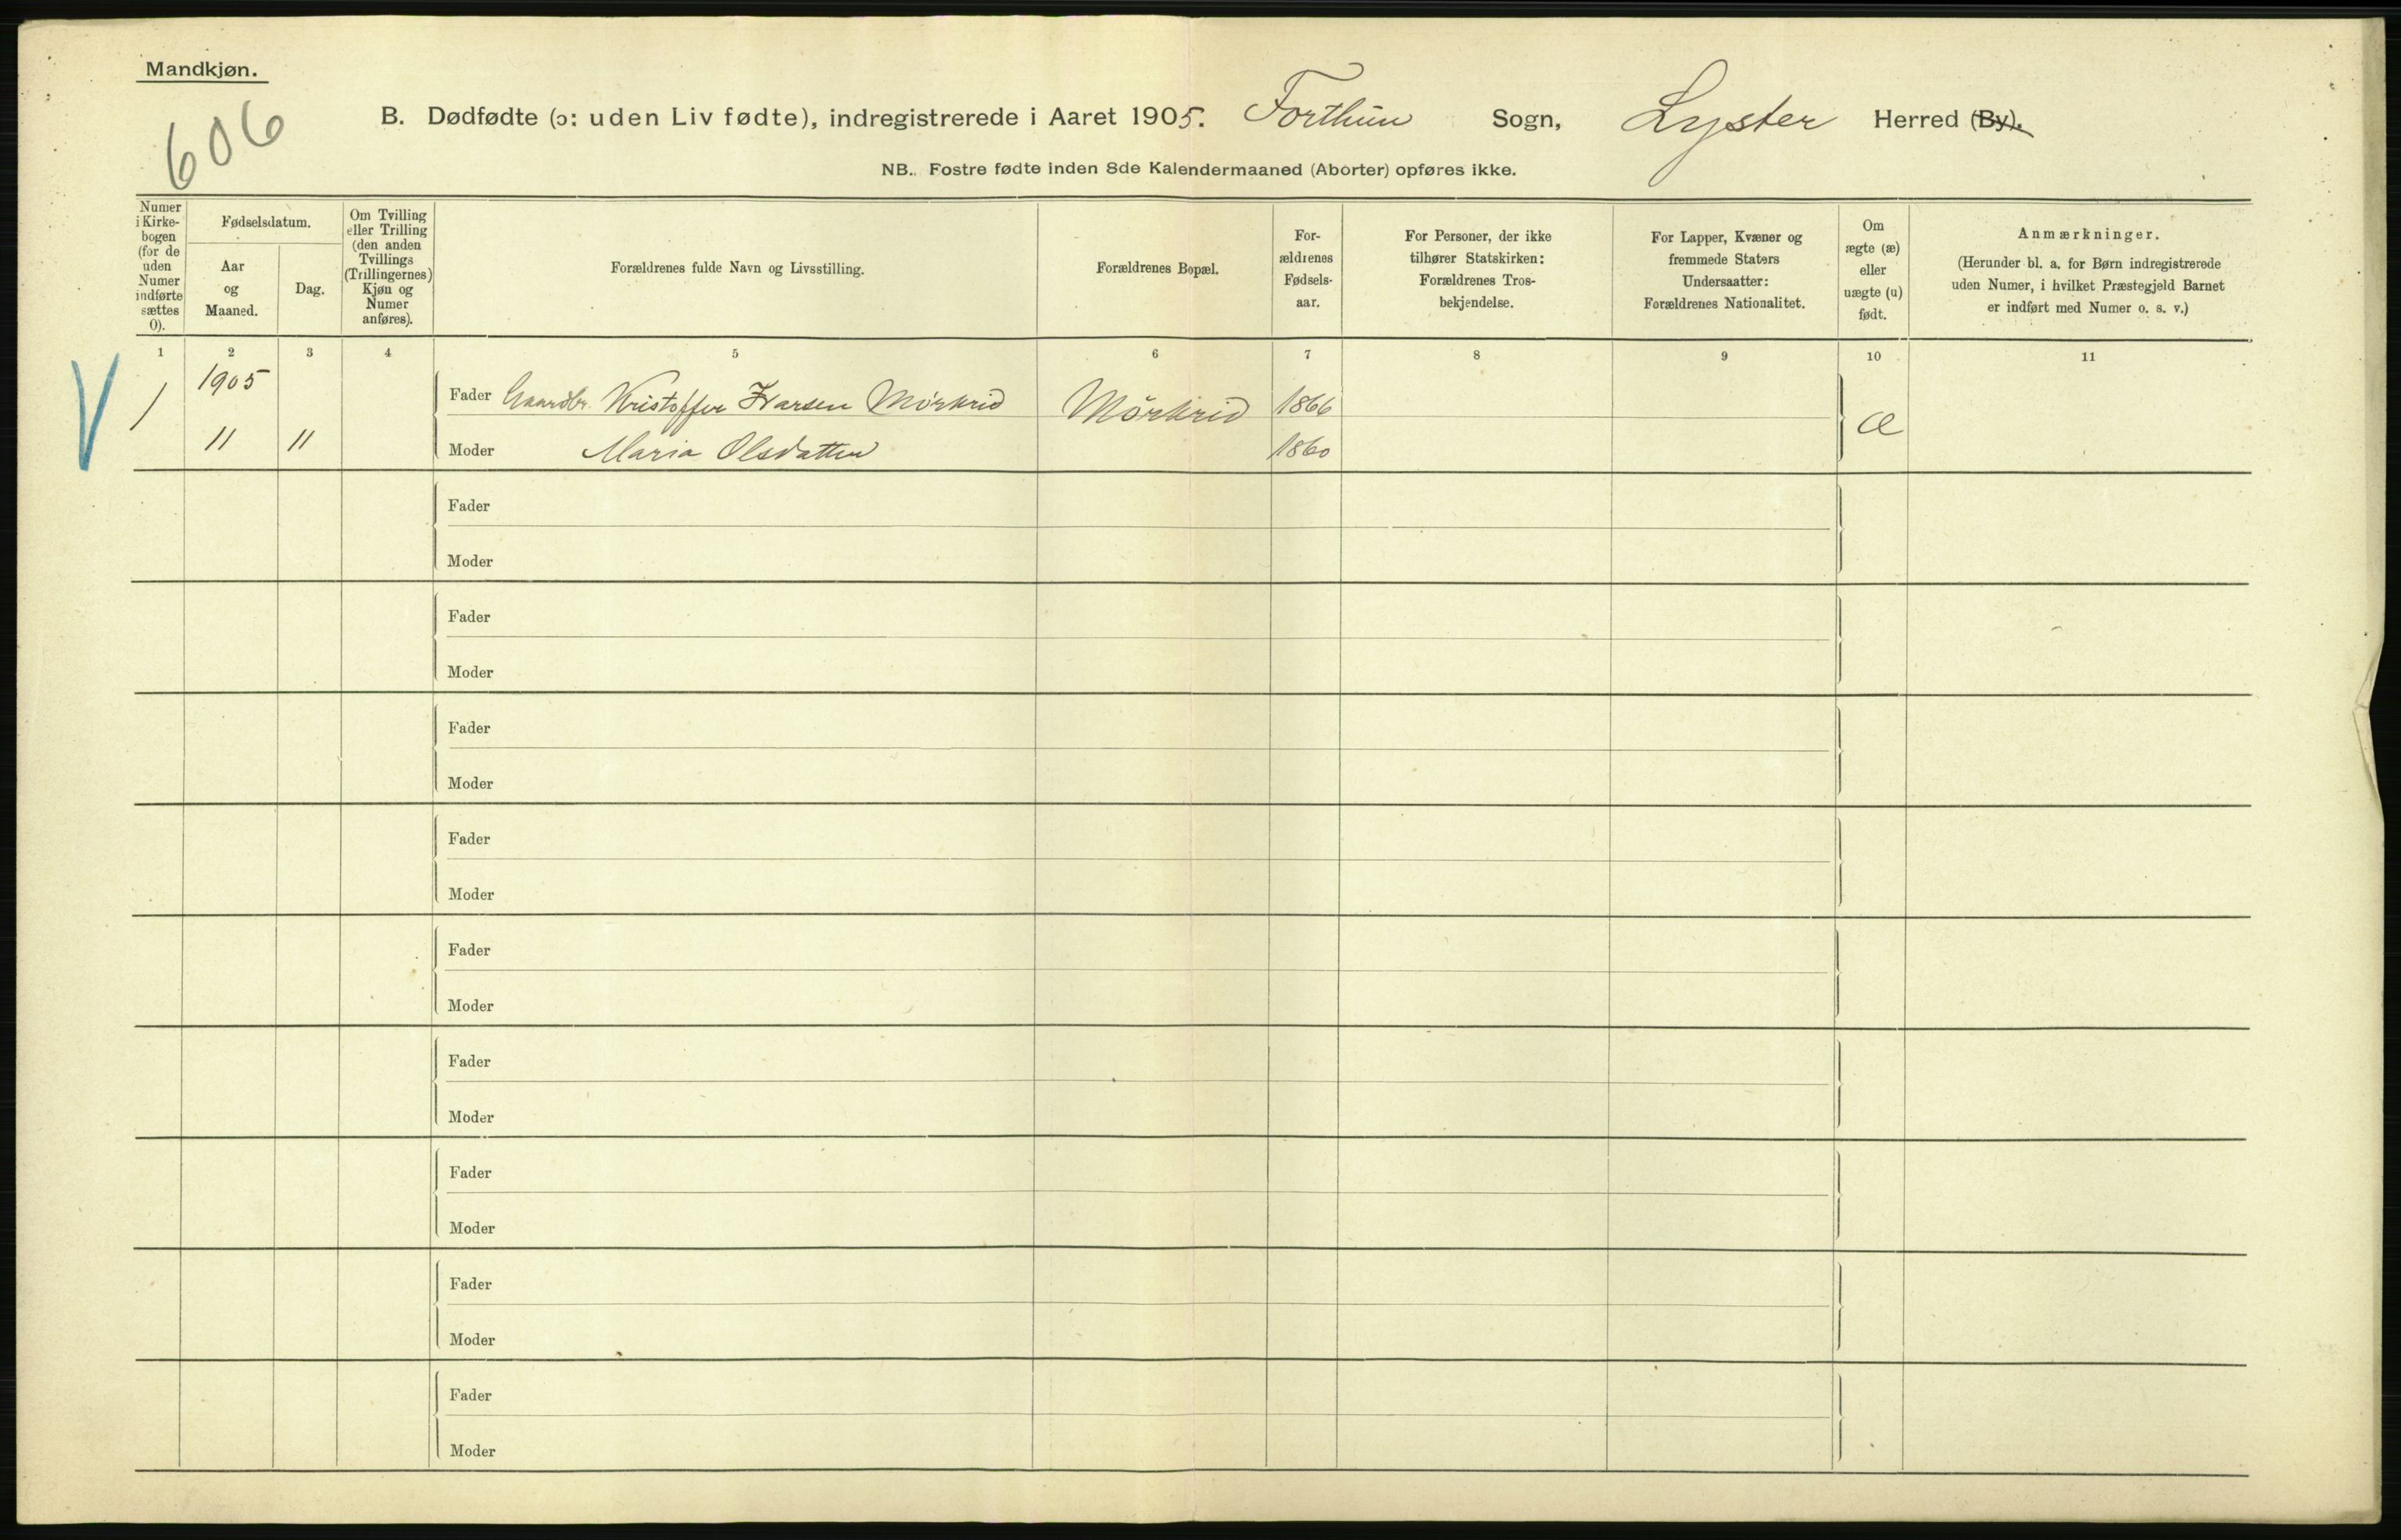 Mandkjøn.
606
B. Dødfødte (ɔ: uden Liv fødte), indregistrerede i Aaret 1905. Forthun Sogn, Lyster Herred (By).
NB. Fostre fødte inden 8de Kalendermaaned (Aborter) opføres ikke.
Numer i Kirkebogen (for de uden Numer indførte sættes 0).
Fødselsdatum.
Aar og Maaned.
Dag.
Om Tvilling eller Trilling (den anden Tvillings (Trillingernes) Kjøn og Numer anføres).
Forældrenes fulde Navn og Livsstilling.
Forældrenes Bopæl.
Forældrenes Fødselsaar.
For Personer, der ikke tilhører Statskirken: Forældrenes Trosbekjendelse.
For Lapper, Kvæner og fremmede Staters Undersaatter: Forældrenes Nationalitet.
Om ægte (æ) eller uægte (u) født.
Anmærkninger.
(Herunder bl. a. for Børn indregistrerede uden Numer, i hvilket Præstegjeld Barnet er indført med Numer o. s. v.)
1 2 3 4 5 6 7 8 9 10 11
V 1 1905 Fader Gaardbr. Kristoffer Ivarsen Mörkrid Mörkrid 1866 æ
11 11 Moder Maria Olsdatter 1860
Fader
Moder
Fader
Moder
Fader
Moder
Fader
Moder
Fader
Moder
Fader
Moder
Fader
Moder
Fader
Moder
Fader
Moder